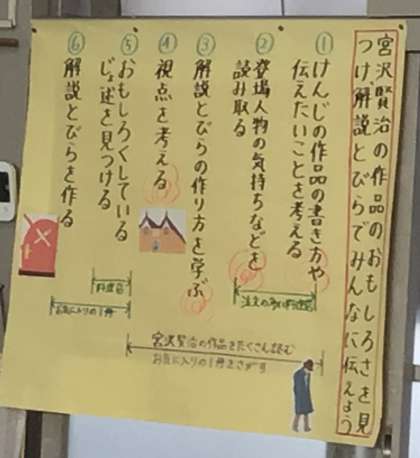 宮沢賢治の作品のおもしろさを見
つけ解説とびらでみんなに伝えよう
① けんじの作品の書き方や
伝えたいことを考える
② 登場人物の気持ちなどを
読み取る
③ 解説とびらの作り方を学ぶ
④ 視点を考える
⑤ おもしろくしている
じょ述を見つける
⑥ 解説とびらを作る
注文の多い料理店
料理店
お気に入りの1冊
宮沢賢治の作品をたくさん読む
お気に入りの1冊をさがす